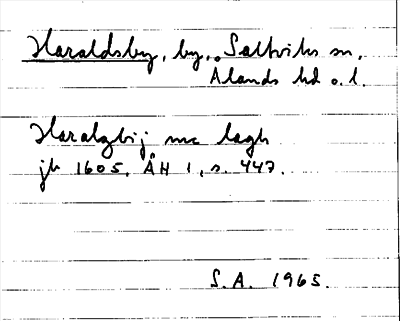 Haraldsby, by, Saltviks sn,
Ålands hd o. l.
Haralzbij mc lagh
jb 1605. ÅH 1, s. 447.
S.A. 1965.